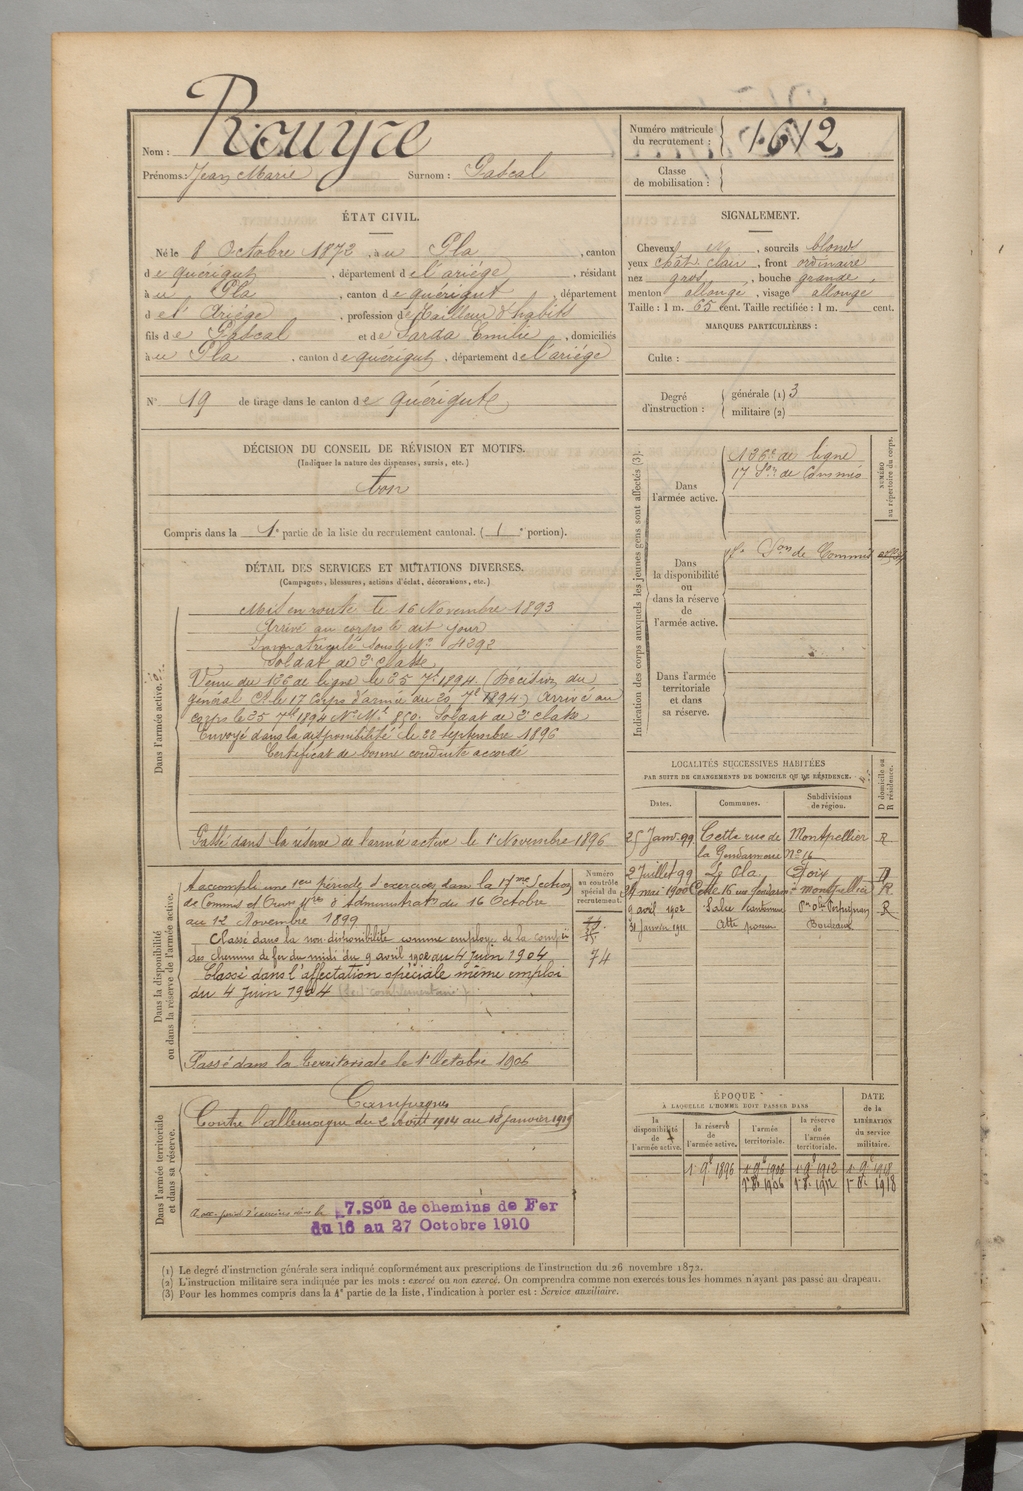 Nom : Rouyre
Prénoms : Jean Marie Surnom : Pascal
Numéro matricule du recrutement : 1612
Classe de mobilisation :
ÉTAT CIVIL.
Né le 8 Octobre 1872, au Pla, canton
de quérigut, département de l'ariége, résidant
à au Pla, canton de quérigut, département
de l'Ariége, profession de tailleur d'habits
fils de Pascal et de Sarda Emilie, domiciliés
à au Pla, canton de quérigut, département de l'ariége
N° 19 de tirage dans le canton de quérigut
SIGNALEMENT.
Cheveux , sourcils blonds
yeux chât clair, front ordinaire
nez gros, bouche grande
menton allongé, visage allongé
Taille : 1 m. 65 cent. Taille rectifiée : 1 m. cent.
MARQUES PARTICULIÈRES :
Culte :
Degré d'instruction : générale (1) 3
militaire (2)
DÉCISION DU CONSEIL DE RÉVISION ET MOTIFS.
(Indiquer la nature des dispenses, sursis, etc.)
bon
Compris dans la 1e partie de la liste du recrutement cantonal. (1e portion).
DÉTAIL DES SERVICES ET MUTATIONS DIVERSES.
(Campagnes, blessures, actions d'éclat, décorations, etc.)
Dans l'armée active.
Mis en route le 16 Novembre 1893
Arrivé au corps le dit jour
Immatriculé sous le N° 4292
Soldat de 2e classe
Venu du 126 de ligne le 25 7bre 1894 (Décision du
général Ct le 17 Corps d'armée du 20 7e 1894) Arrivé au
corps le 25 7bre 1894 N° Ml 850. Soldat de 2e classe
Envoyé dans la disponibilité le 22 septembre 1896
Certificat de bonne conduite accordé
Passé dans la réserve de l'armée active le 1er Novembre 1896
Dans la disponibilité ou dans la réserve de l'armée active.
A accompli une 1ere période d'exercices dans la 17me Section
de Commis et Ouvr Mres d'Administratn du 16 Octobre
au 12 Novembre 1899
Classé dans la non disponibilité comme employé de la compie
des chemins de fer du midi du 9 avril 1902 au 4 Juin 1904
Classé dans l'affectation spéciale même emploi
du 4 Juin 1904
Passé dans la territoriale le 1er Octobre 1906
Numéro au contrôle spécial du recrutement.
74
Dans l'armée territoriale et dans sa réserve.
Campagnes
Contre l'allemagne du 2 Août 1914 au 18 janvier 1919
A acc. période d'exercices dans la 7. Son de chemins de Fer
du 16 au 27 Octobre 1910
Indication des corps auxquels les jeunes gens sont affectés (3).
NUMÉRO au répertoire du corps.
Dans l'armée active.
126e de ligne
17 Son de Commis
Dans la disponibilité ou dans la réserve de l'armée active.
Son de Commis
Dans l'armée territoriale et dans sa réserve.
LOCALITÉS SUCCESSIVES HABITÉES
PAR SUITE DE CHANGEMENTS DE DOMICILE OU DE RÉSIDENCE.
Dates. Communes. Subdivisions de région. D domicile ou R résidence.
25 Janv 99 Cette rue de la Gendarmerie N° 16 Montpellier R
2 Juillet 99 Le Pla Foix D
24 mai 1900 Cette 16 rue gendarmerie Montpellier R
9 avril 1902 Perpignan R
31 Janvier 1911 Bordeaux
ÉPOQUE
À LAQUELLE L'HOMME DOIT PASSER DANS
la disponibilité de l'armée active. la réserve de l'armée active. l'armée territoriale. la réserve de l'armée territoriale.
DATE de la LIBÉRATION du service militaire.
1er 9e 1896 1er 9e 1906 1er 9e 1912 1er 9e 1918
1er 8e 1906 1er 8e 1912 1er 8e 1918
(1) Le degré d'instruction générale sera indiqué conformément aux prescriptions de l'instruction du 26 novembre 1872.
(2) L'instruction militaire sera indiquée par les mots : exercé ou non exercé. On comprendra comme non exercés tous les hommes n'ayant pas passé au drapeau.
(3) Pour les hommes compris dans la 4e partie de la liste, l'indication à porter est : Service auxiliaire.